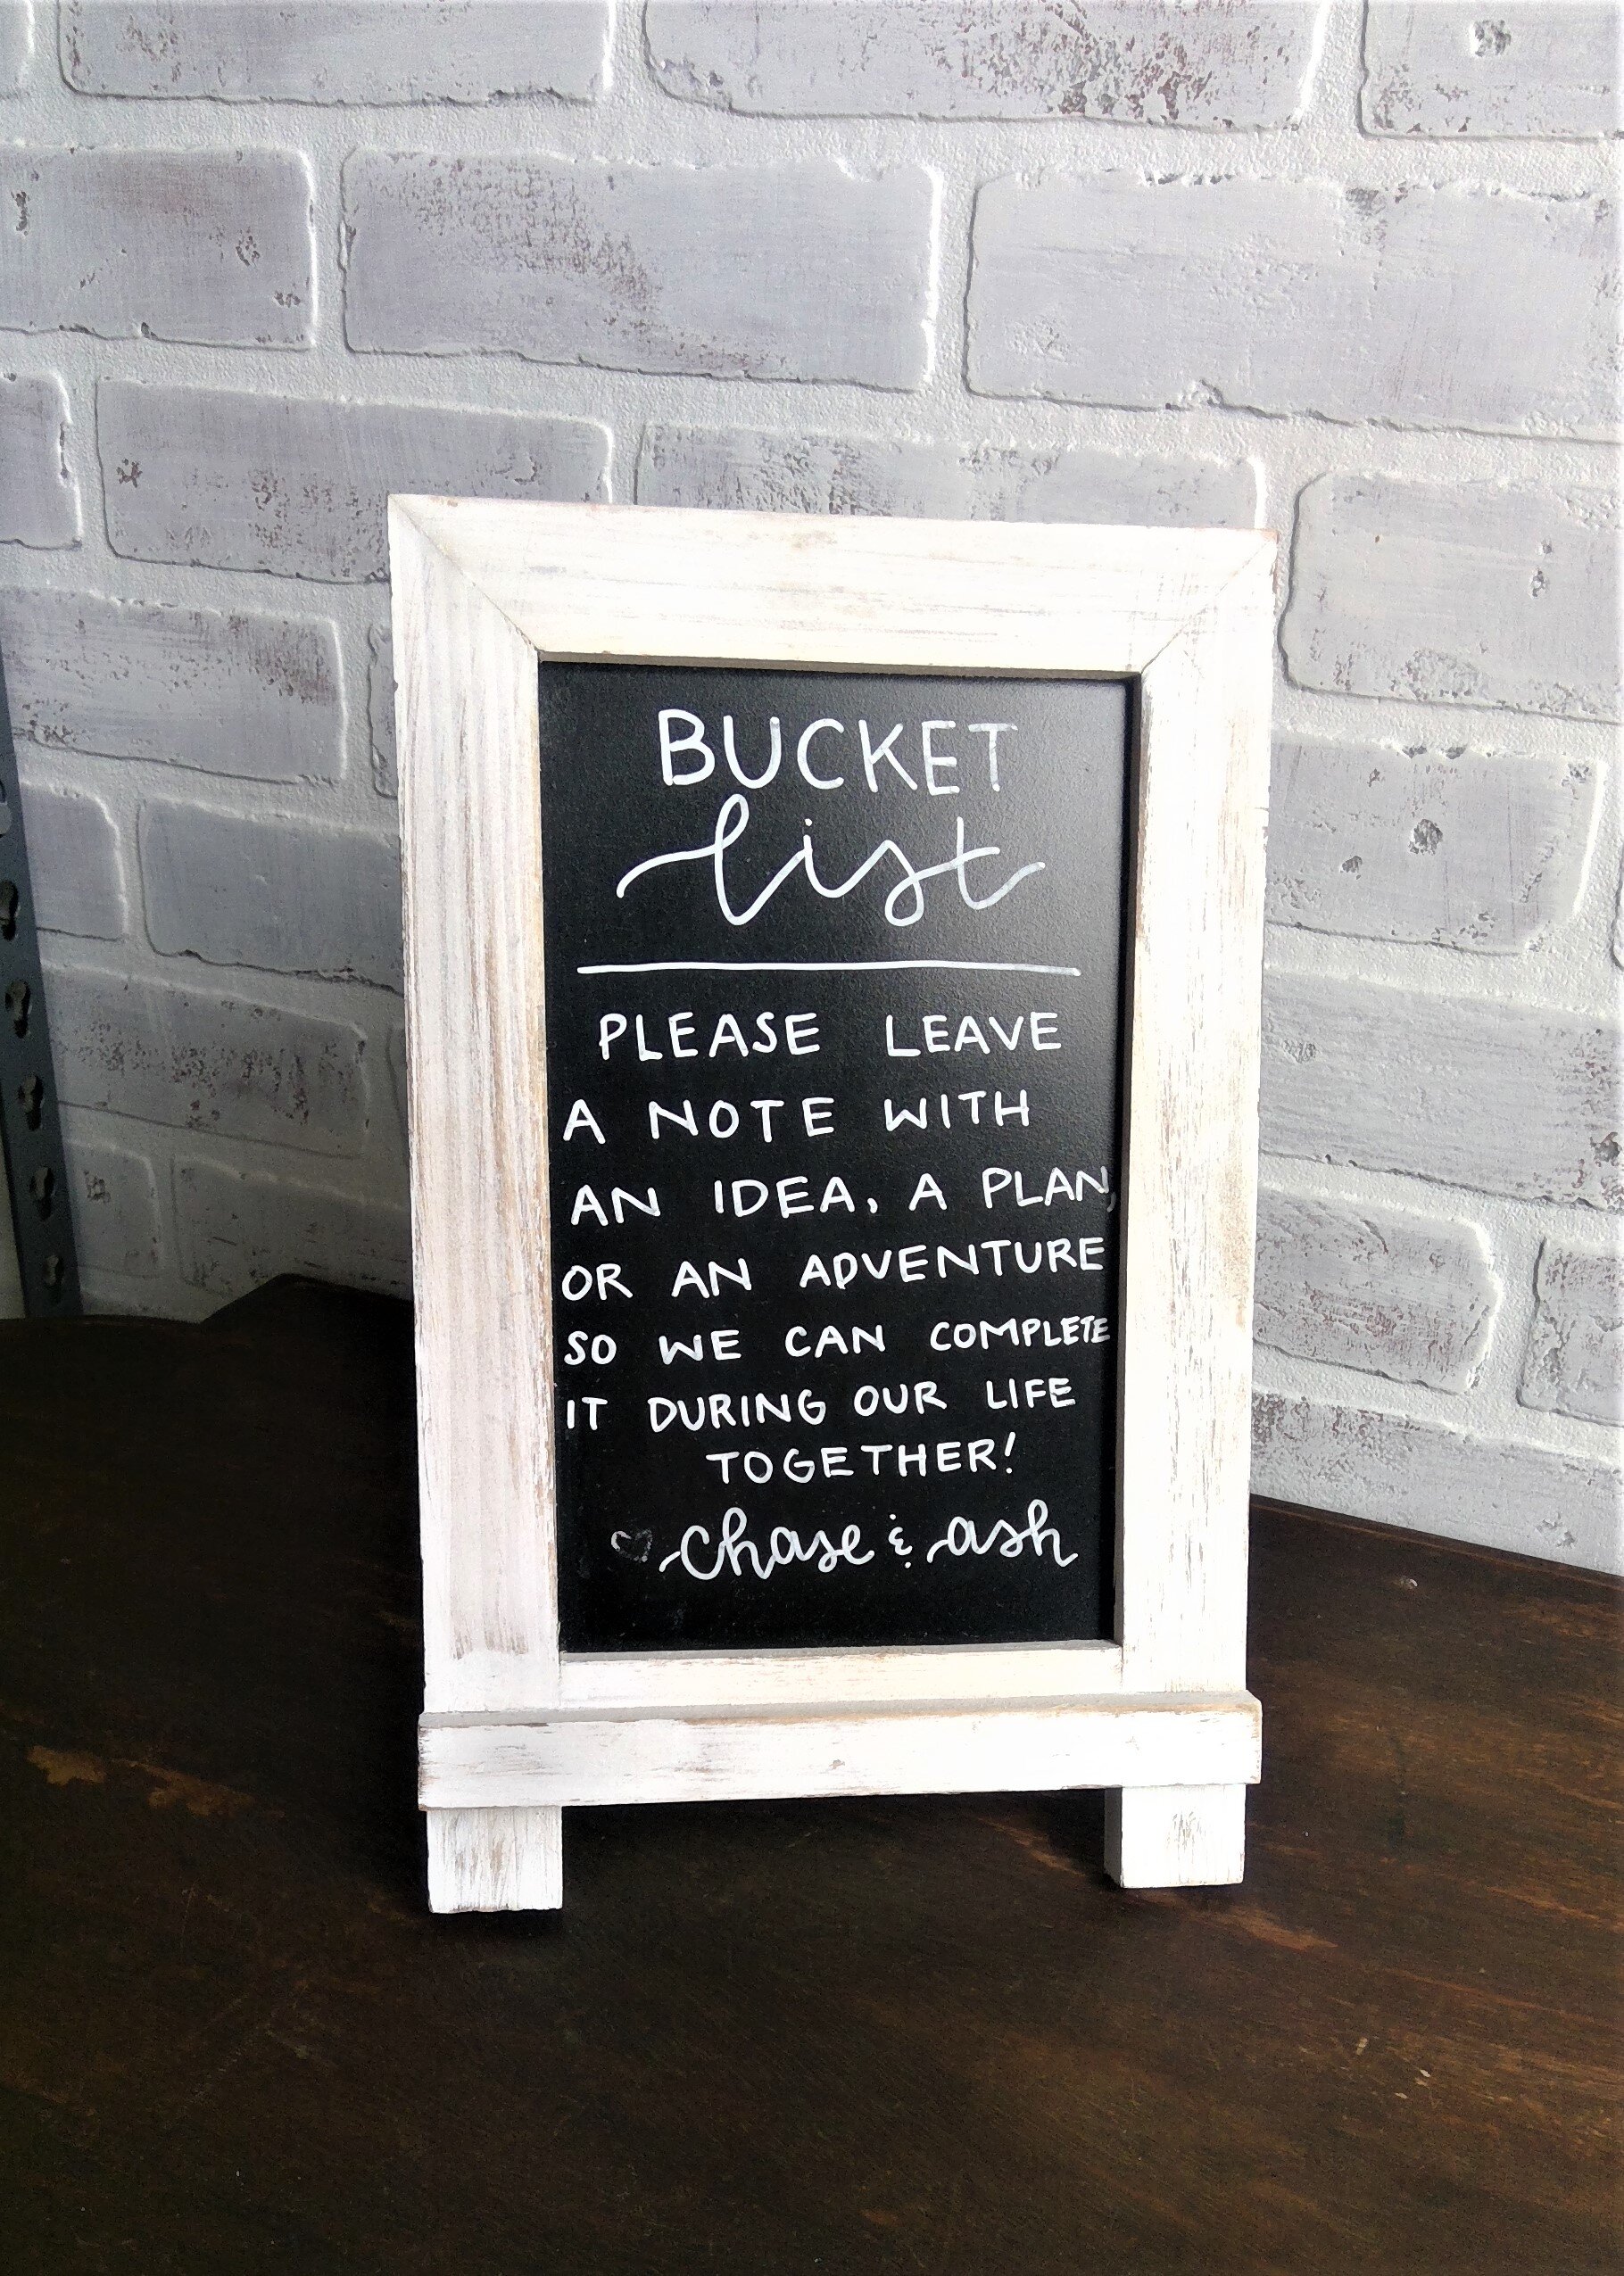 BUCKET
list
PLEASE LEAVE
A NOTE WITH
AN IDEA, A PLAN,
OR AN ADVENTURE
SO WE CAN COMPLETE
IT DURING OUR LIFE
TOGETHER!
♡ chase & ash